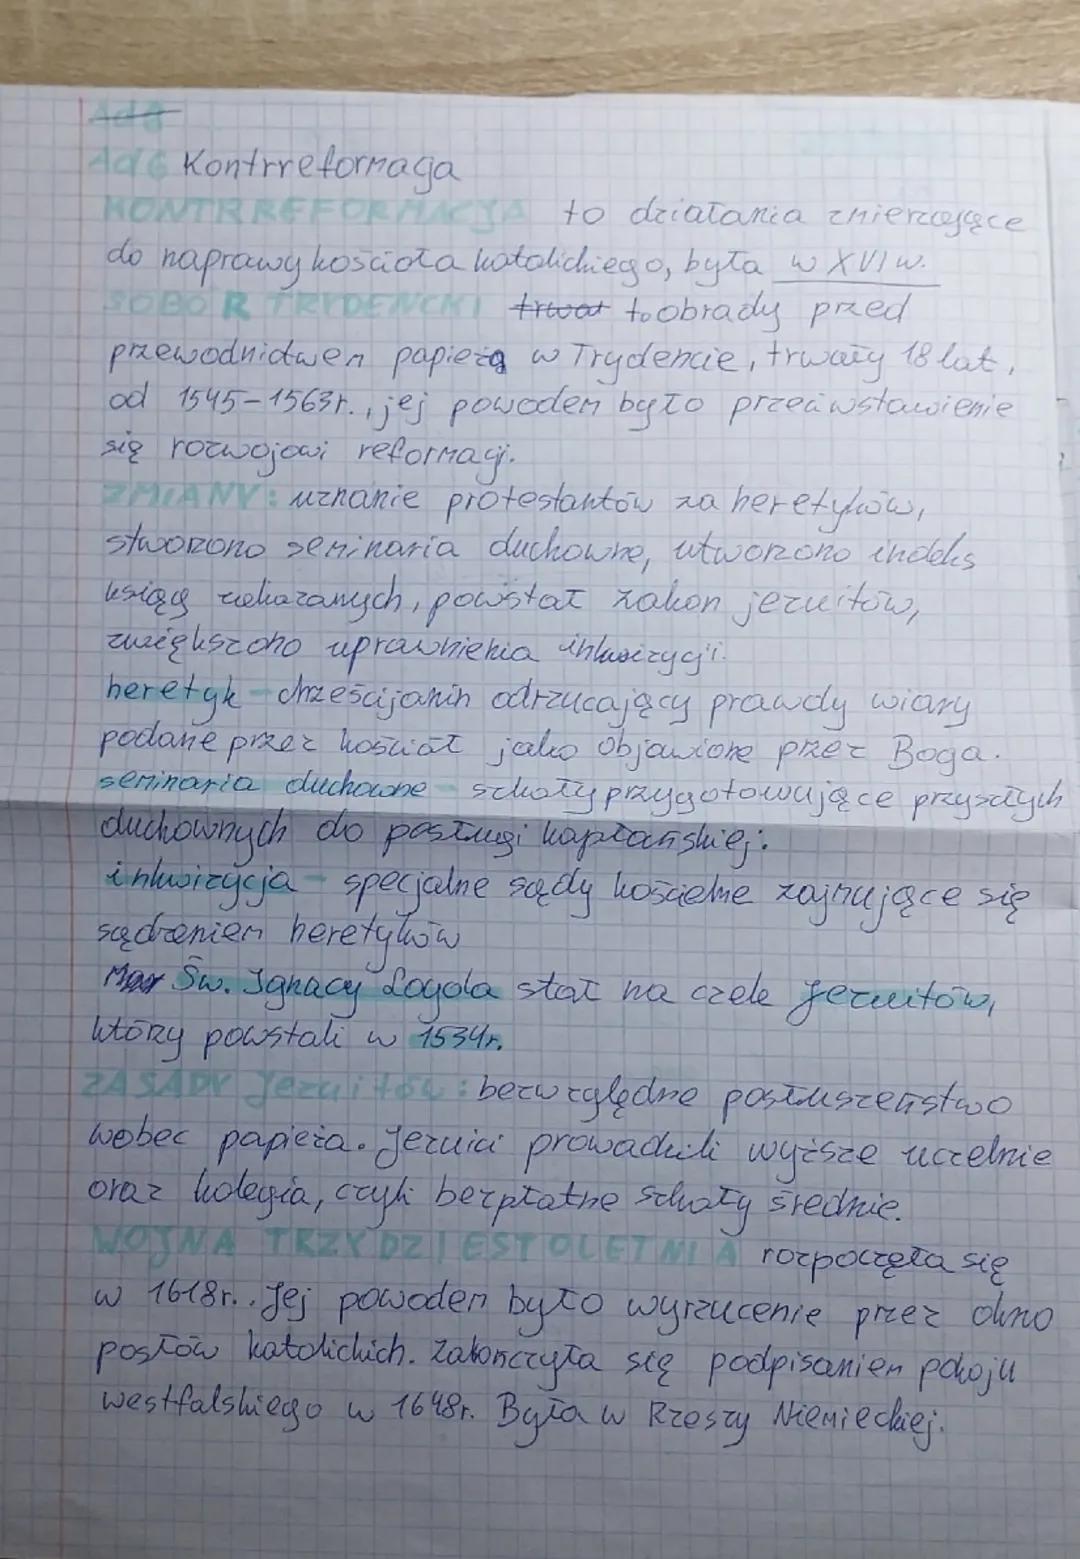 Ad 8
Ad 6 Kontrreformacja
KONTRREFORMACJA to działania zmierzające
do naprawy kościoła katolickiego, była w XVI w.
SOBÓR TRYDENCKI trwał to obrady pzed
przewodnictwem papieża w Trydencie, trwały 18 lat,
od 1545-1563r., jej powodem było przeciwstawienie
się rozwojowi reformacji.
ZMIANY: uznanie protestantów za heretyków,
stworzono seminaria duchowne, utworzono indeks
ksiąg zakazanych, powstał zakon jezuitów,
zwiększono uprawnienia inkwizycji.
heretyk - chrześcijanin odrzucający prawdy wiary
podane przez kościół jako objawione przez Boga.
seminaria duchowne - szkoły przygotowujące przyszłych
duchownych do posługi kapłańskiej.
inkwizycja - specjalne sądy kościelne zajmujące się
sądzeniem heretyków
Św. Ignacy Loyola stał na czele jezuitów,
którzy powstali w 1534r.
ZASADY jezuitów: bezwzględne posłuszeństwo
wobec papieża. Jezuici prowadzili wyższe uczelnie
oraz kolegia, czyli bezpłatne szkoły średnie.
WOJNA TRZYDZIESTOLETNIA rozpoczęła się
w 1618r. Jej powodem było wyrzucenie przez okno
posłów katolickich. Zakończyła się podpisaniem pokoju
westfalskiego w 1648r. Była w Rzeszy Niemieckiej.